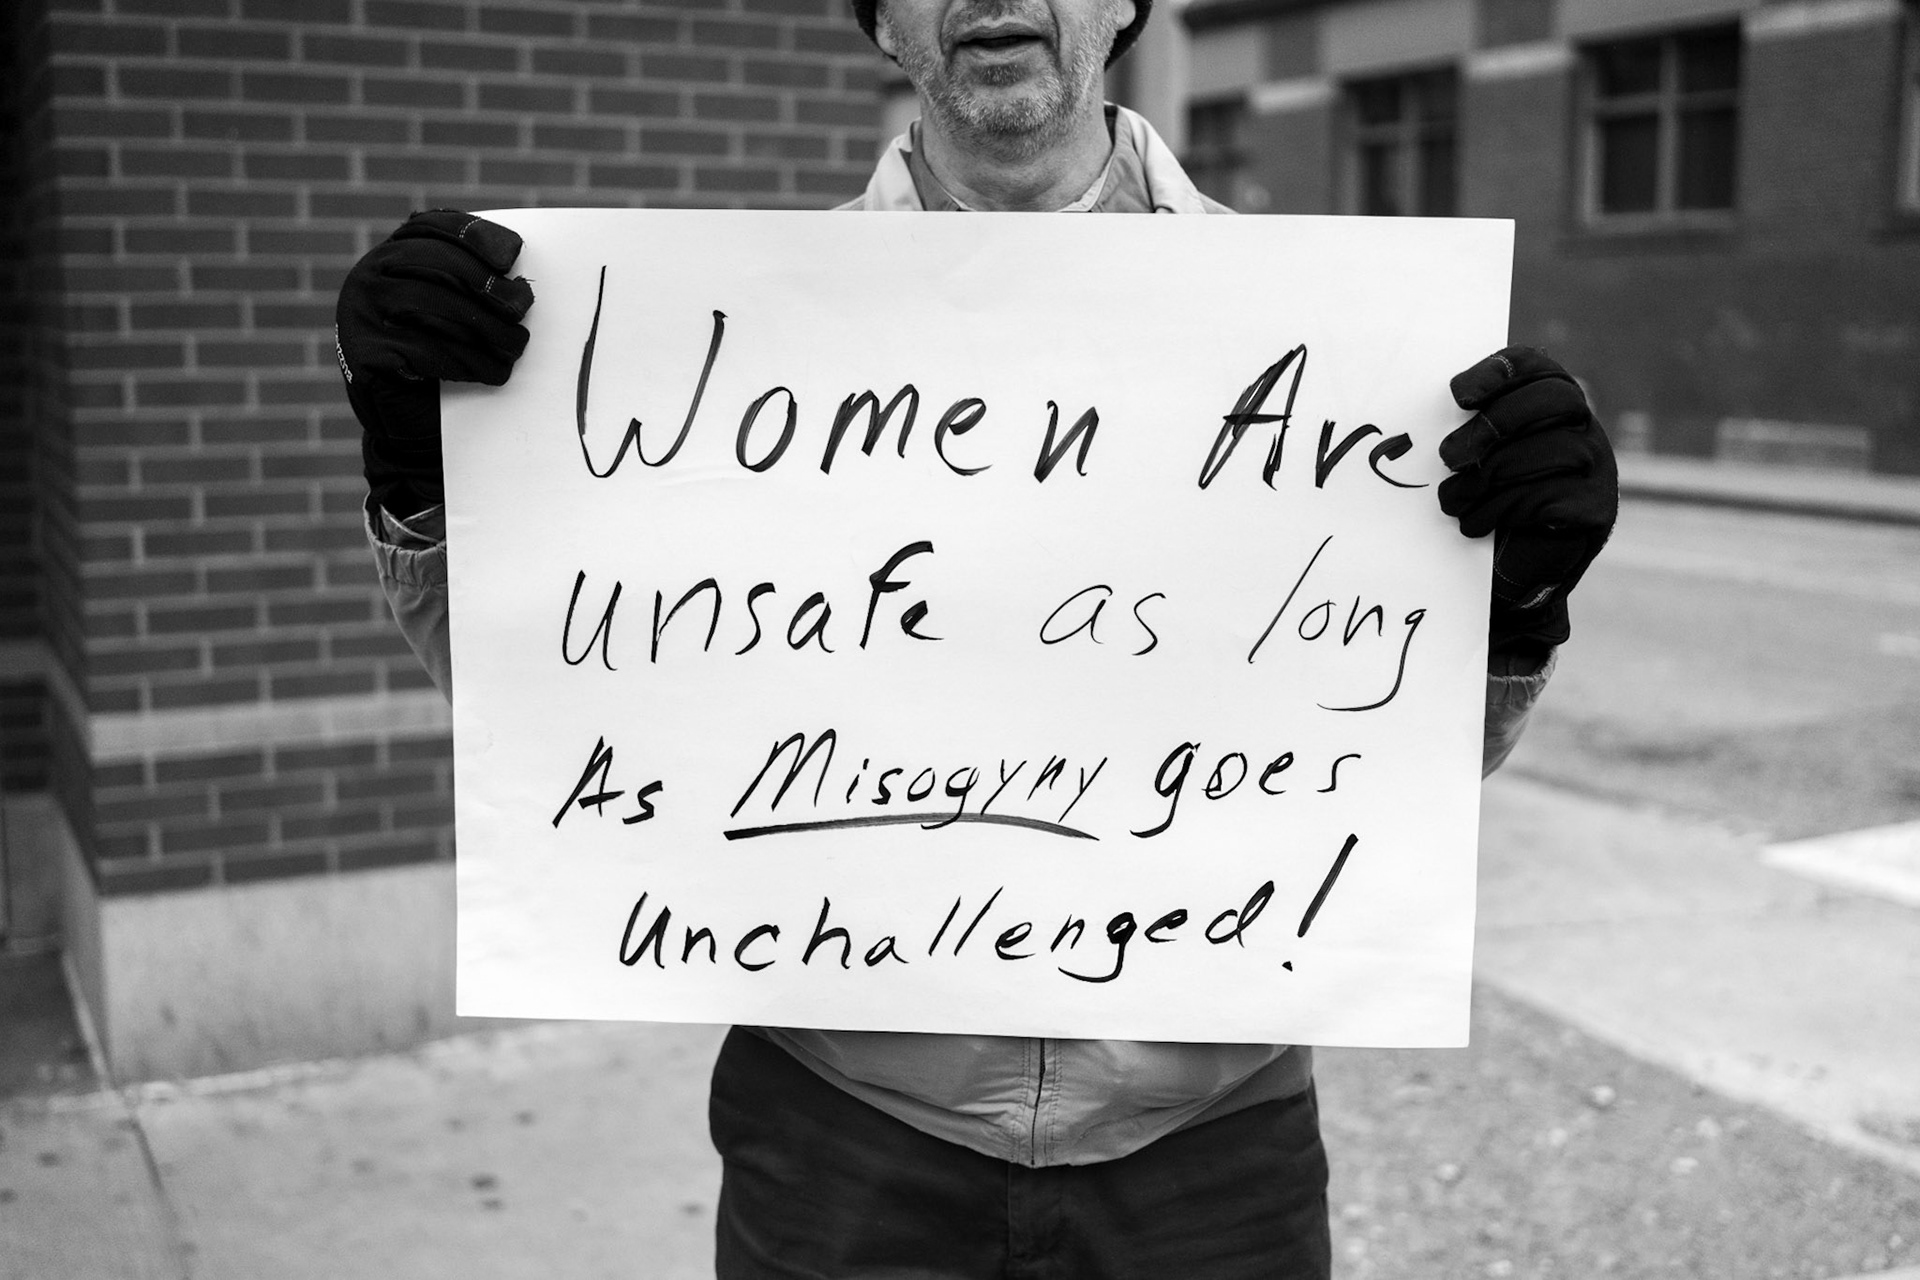 Women Are
unsafe as long
As Misogyny goes
Unchallenged!